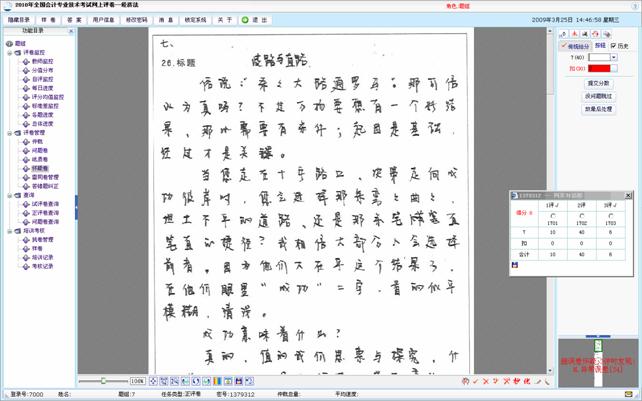 2010年全国会计专业技术考试网上评卷--经济法
角色:题组
隐藏目录 样 卷 答 案 用户信息 修改密码 消 息 锁定系统 关 于 退 出
2009年3月25日 14:46:58 星期三
功能目录
题组
评卷监控
教师监控
分值分布
自评监控
每日进度
评分均值监控
标准差监控
各题进度
总体进度
评卷管理
仲裁
问题卷
纸质卷
怀疑卷
雷同卷管理
答错题纠正
查询
试评卷查询
正评卷查询
问题卷查询
培训考核
挑卷管理
样卷
培训记录
考核记录
七、
26.标题
弯路与直路
俗说:"条条大路通罗马"。那可信
以为真吗?不过万物要想有一个好结
果,那必需要有条件;起因是基础,
经过才是关键。
当您走在十字路口,决策走向成
功彼岸时,您会选择那条弯弯曲曲、
坦土不平的道路,还是那条笔
笔直的捷径?我相信大部分人会选择
前者。因为他们太在乎这个结果了,
在他们眼里"成功"二字,看的似乎
模糊,清淡。
成功意味着什么?
真的,值的我们思索与探究,什
传统给分 按钮 历史
T(40)
扣(30)
提交分数
没问题跳过
放最后处理
1379312
1评 2评 3评
得分:8
1T01 1T02 1T03
T 10 40 6
扣 0 0 0
合计 10 40 6
100%
登录号:7000 姓名: 题组:7 任务类型:正评卷 密号:1379312 仲裁总量: 平均速度: